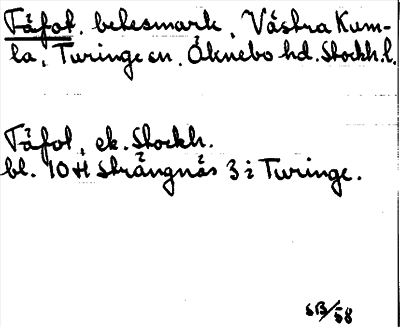 Tåfot, betesmark, Västra Kum-
la, Turinge sn, Öknebo hd. Stockh. l.
Tåfot, ek. Stockh.
bl. 10 H Strängnäs 3 i Turinge.
SB/58